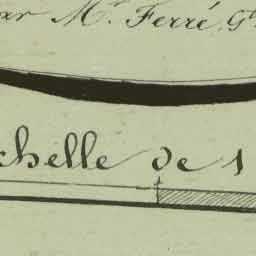 ar Mr. Ferré, G
chelle de 1